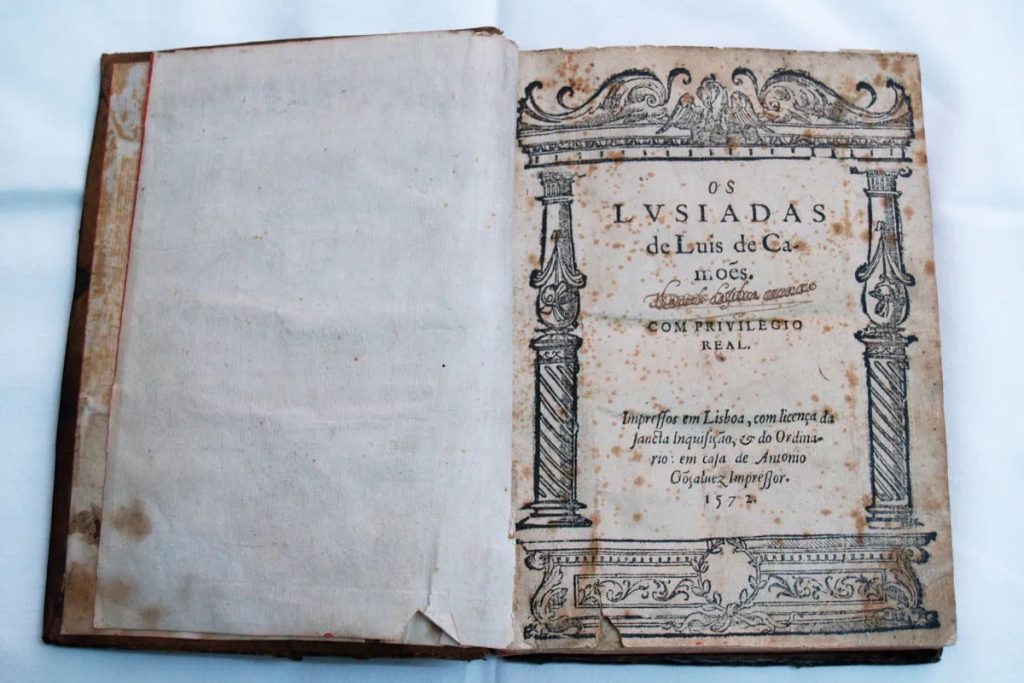 OS
LVSIADAS
de Luis de Ca-
mões.
COM PRIVILEGIO
REAL.
Impreſſos em Lisboa, com licença da
ſancta Inquiſição, & do Ordina-
rio: em caſa de Antonio
Gõçaluez Impreſſor.
1572.